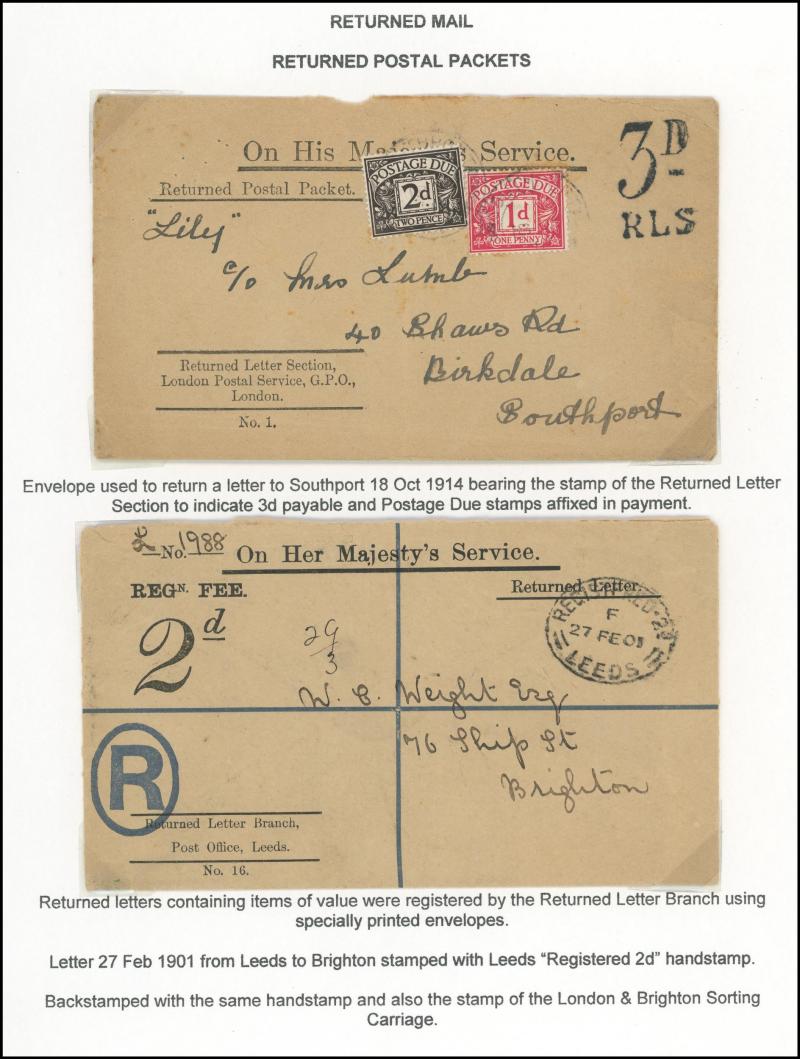 RETURNED MAIL
RETURNED POSTAL PACKETS
On His Majesty's Service.
3D
RLS
Returned Postal Packet.
POSTAGE DUE
2d
TWO PENCE
POSTAGE DUE
1d
ONE PENNY
"Lily"
c/o Mrs Lumb
40 Shaws Rd
Birkdale
Southport
Returned Letter Section,
London Postal Service, G.P.O.,
London.
No. 1.
Envelope used to return a letter to Southport 18 Oct 1914 bearing the stamp of the Returned Letter
Section to indicate 3d payable and Postage Due stamps affixed in payment.
£ No. 1988
On Her Majesty's Service.
REGN. FEE.
2d
Returned Letter.
REGISTERED·2d
F
27 FE 01
LEEDS
29
3
W. C. Weight Esq
76 Ship St
Brighton
R
Returned Letter Branch,
Post Office, Leeds.
No. 16.
Returned letters containing items of value were registered by the Returned Letter Branch using
specially printed envelopes.
Letter 27 Feb 1901 from Leeds to Brighton stamped with Leeds “Registered 2d” handstamp.
Backstamped with the same handstamp and also the stamp of the London & Brighton Sorting
Carriage.